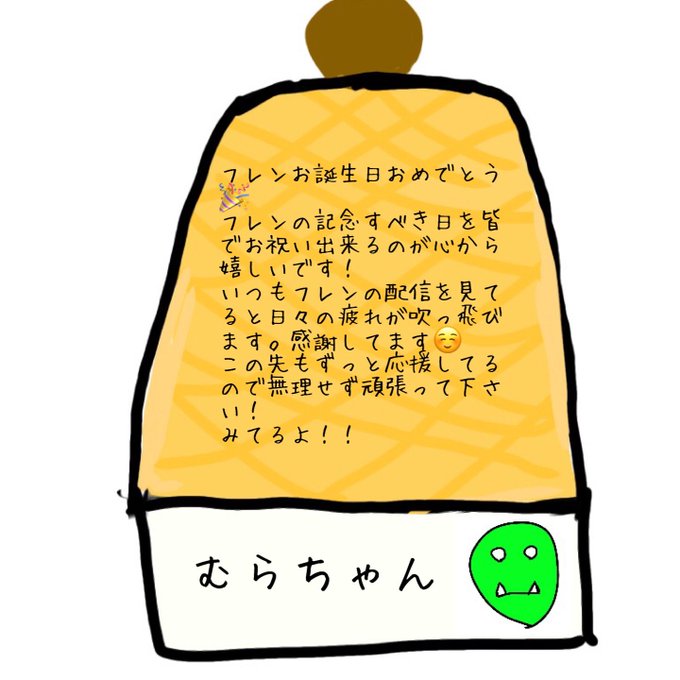 フレンお誕生日おめでとう
🎉
フレンの記念すべき日を皆
でお祝い出来るのが心から
嬉しいです！
いつもフレンの配信を見て
ると日々の疲れが吹っ飛び
ます。感謝してます☺️
この先もずっと応援してる
ので無理せず頑張って下さ
い！
みてるよ！！
むらちゃん